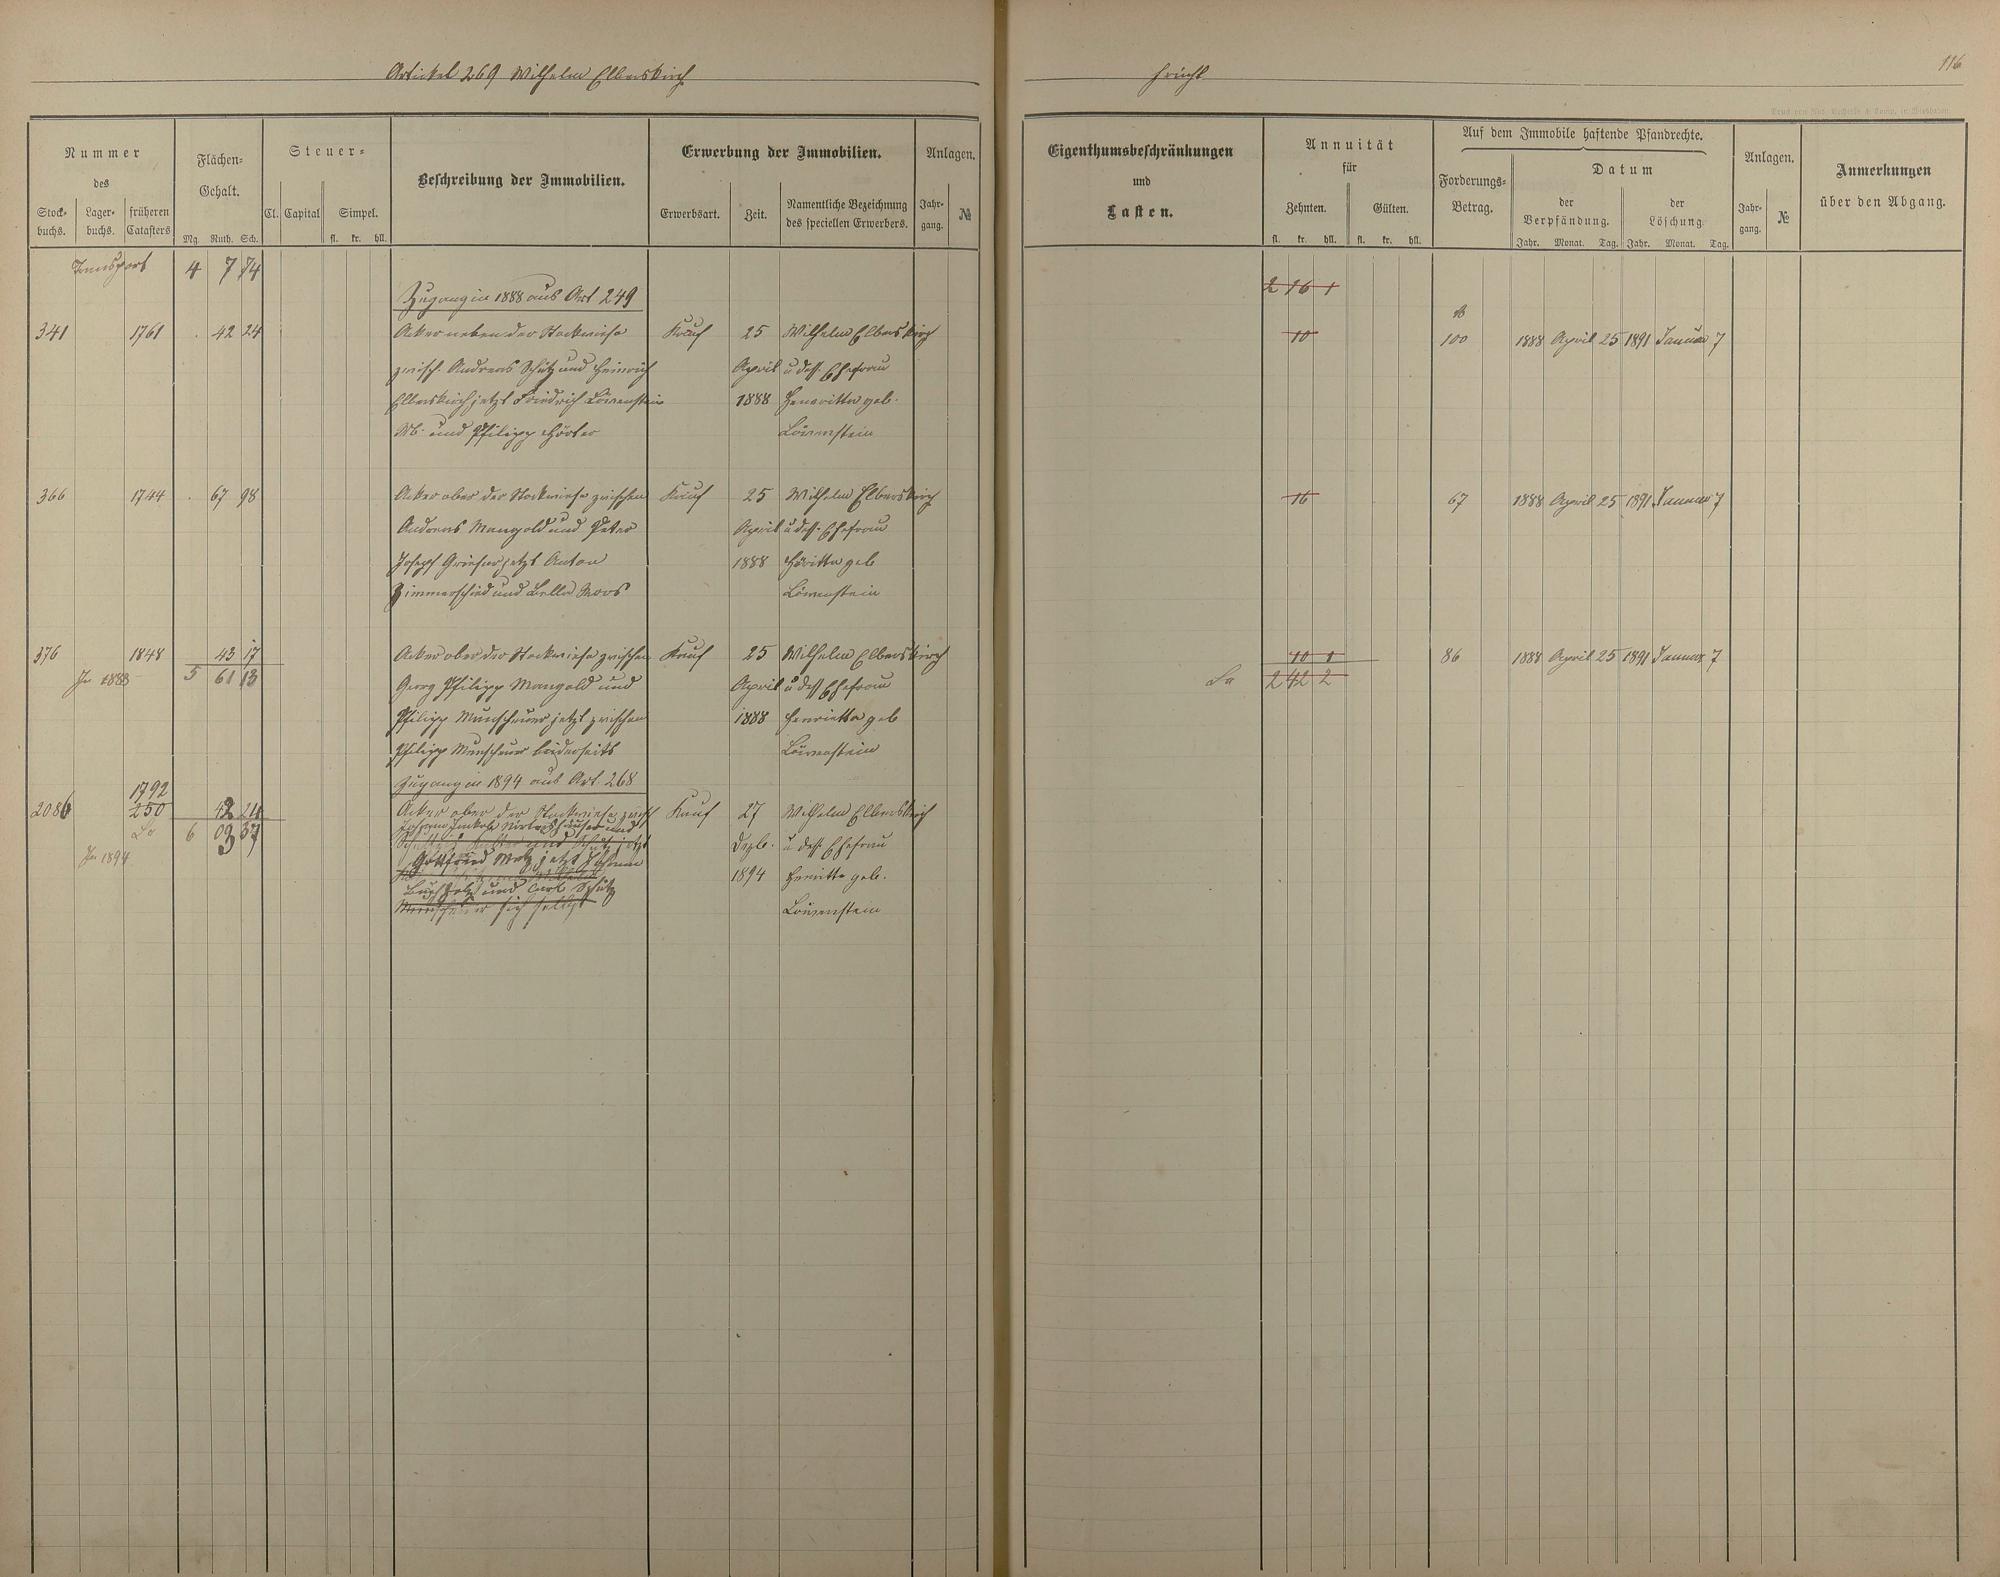 Artickel 269 Wilhelm Elberskirch
Frücht
116
Nummer
des
Stock-
buchs.
Lager-
buchs.
früheren
Catasters
Flächen-
Gehalt.
Mg. Ruth. Sch.
Steuer-
Cl. Capital Simpel.
fl. kr. hll.
Beschreibung der Immobilien.
Erwerbung der Immobilien.
Erwerbsart. Zeit.
Namentliche Bezeichnung
des speciellen Erwerbers.
Anlagen.
Jahr-
gang.
№
Eigenthumsbeschränkungen
und
Lasten.
Annuität
für
Zehnten. Gülten.
fl. kr. hll. fl. kr. hll.
Auf dem Immobile haftende Pfandrechte.
Forderungs-
Betrag.
Datum
der
Verpfändung.
der
Löschung.
Jahr. Monat. Tag. Jahr. Monat. Tag.
Anlagen.
Jahr-
gang.
№
Anmerkungen
über den Abgang.
Transport 4 7 74
2 16 1
Zugang in 1888 aus Art 249
341 1761 . 42 24 Acker neben der Stockwiese Kauf 25 Wilhelm Elberskirch 10 100 1888 April 25 1891 Januar 7
zwisch. Andreas Schütz und Heinrich April u dess. Ehefrau
Elberskirch jetzt Friedrich Löwenstein 1888 Henritta geb.
Wb. und Philipp Hörter Löwenstein
366 1744 . 67 98 Acker ober der Stockwiese zwischen Kauf 25 Wilhelm Elberskirch 16 67 1888 April 25 1891 Januar 7
Andreas Mangold und Peter April u dess. Ehefrau
Joseph Grieser jetzt Anton 1888 Henritta geb
Zimmerschied und Bella Moos Löwenstein
376 1848 43 17 Acker ober der Stockwiese zwischen Kauf 25 Wilhelm Elberskirch 10 1 86 1888 April 25 1891 Januar 7
In 1888 5 61 13 Georg Philipp Mangold und April u dess Ehefrau Sa 2 42 2
Philipp Munscheuer jetzt zwischen 1888 Henrietta geb
Philipp Munscheuer beiderseits Löwenstein
Zugang in 1894 aus Art. 268
1792
2086 250 42 24 Acker ober der Stockwiese zwisch Kauf 27 Wilhelm Elberskirch
Sa 6 03 37
In 1894
Dezb. u dess. Ehefrau
Gottfried Metz jetzt Johann
1894 Henritta geb.
Buchholz und Carl Schütz
Munscheuer sich selbst Löwenstein